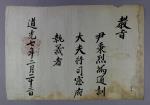 敎旨
尹秉烈爲通訓
大夫行司憲府
執義者
道光七年二月二十三日